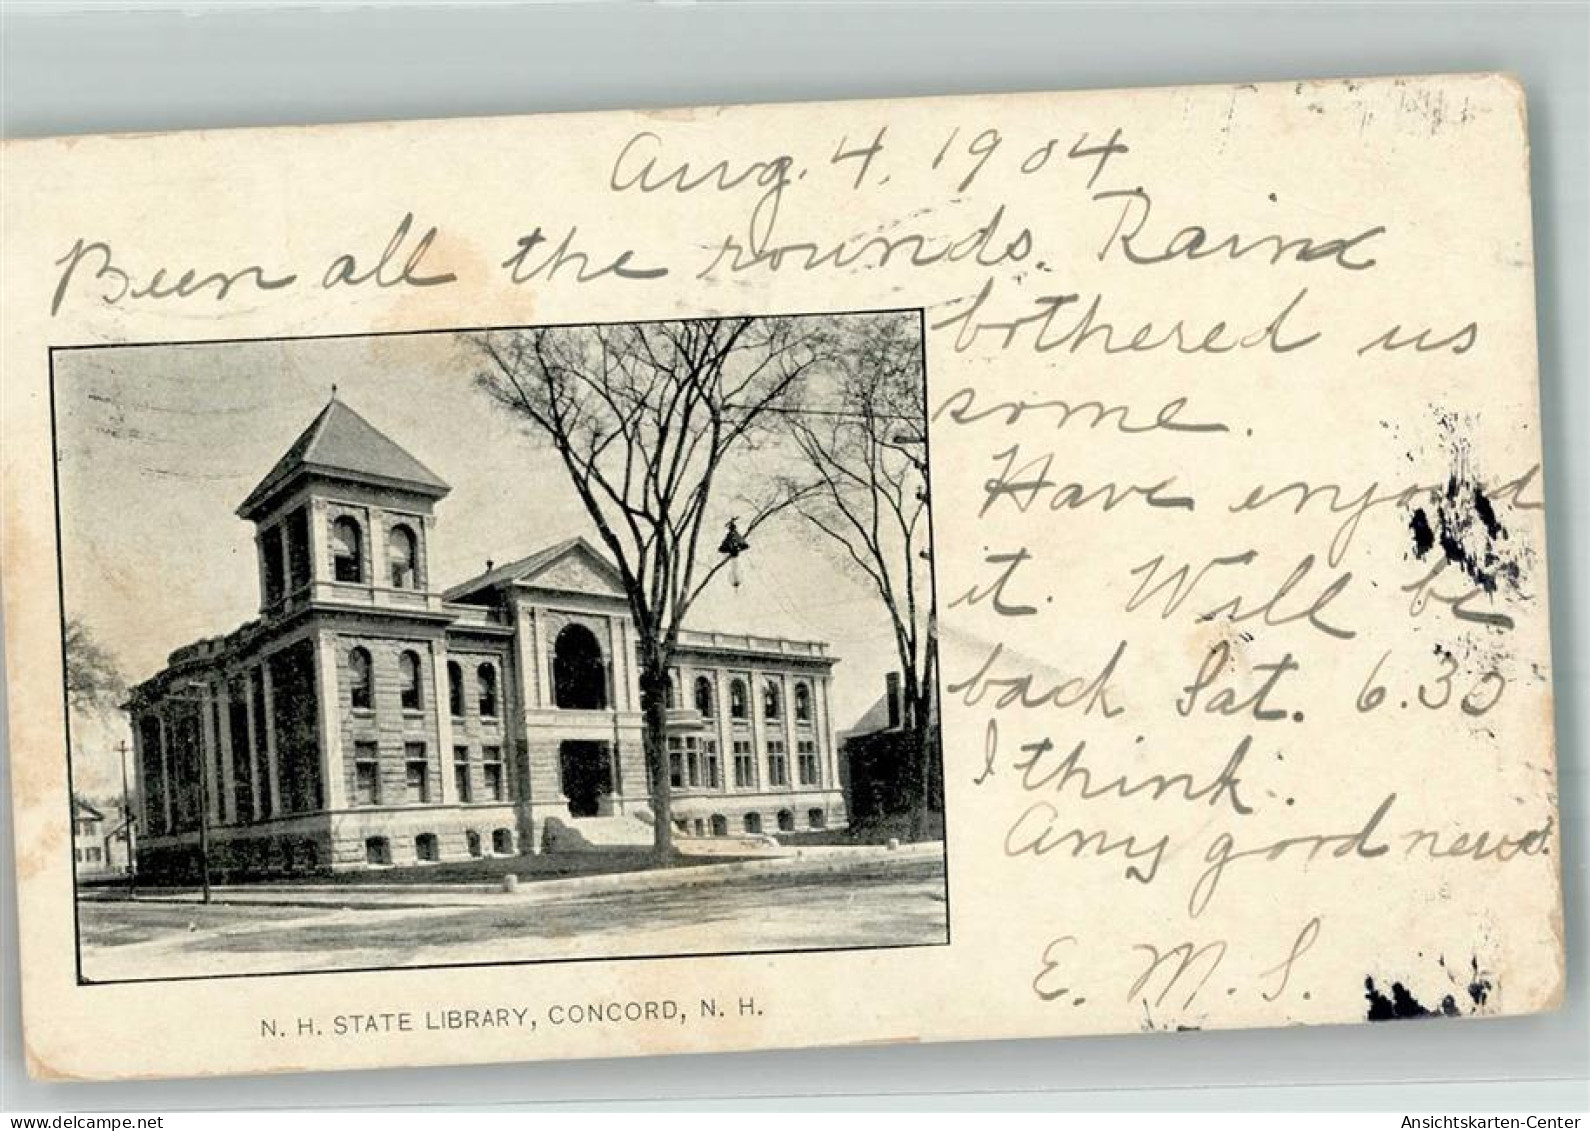 Aug. 4, 1904
Been all the rounds. Rained
bothered us
some.
Have enjoyed
it. Will be
back Sat. 6.30
I think.
Any good news.
E. M. S.
N. H. STATE LIBRARY, CONCORD, N. H.
Ansichtskarten-Center
www.delcampe.net